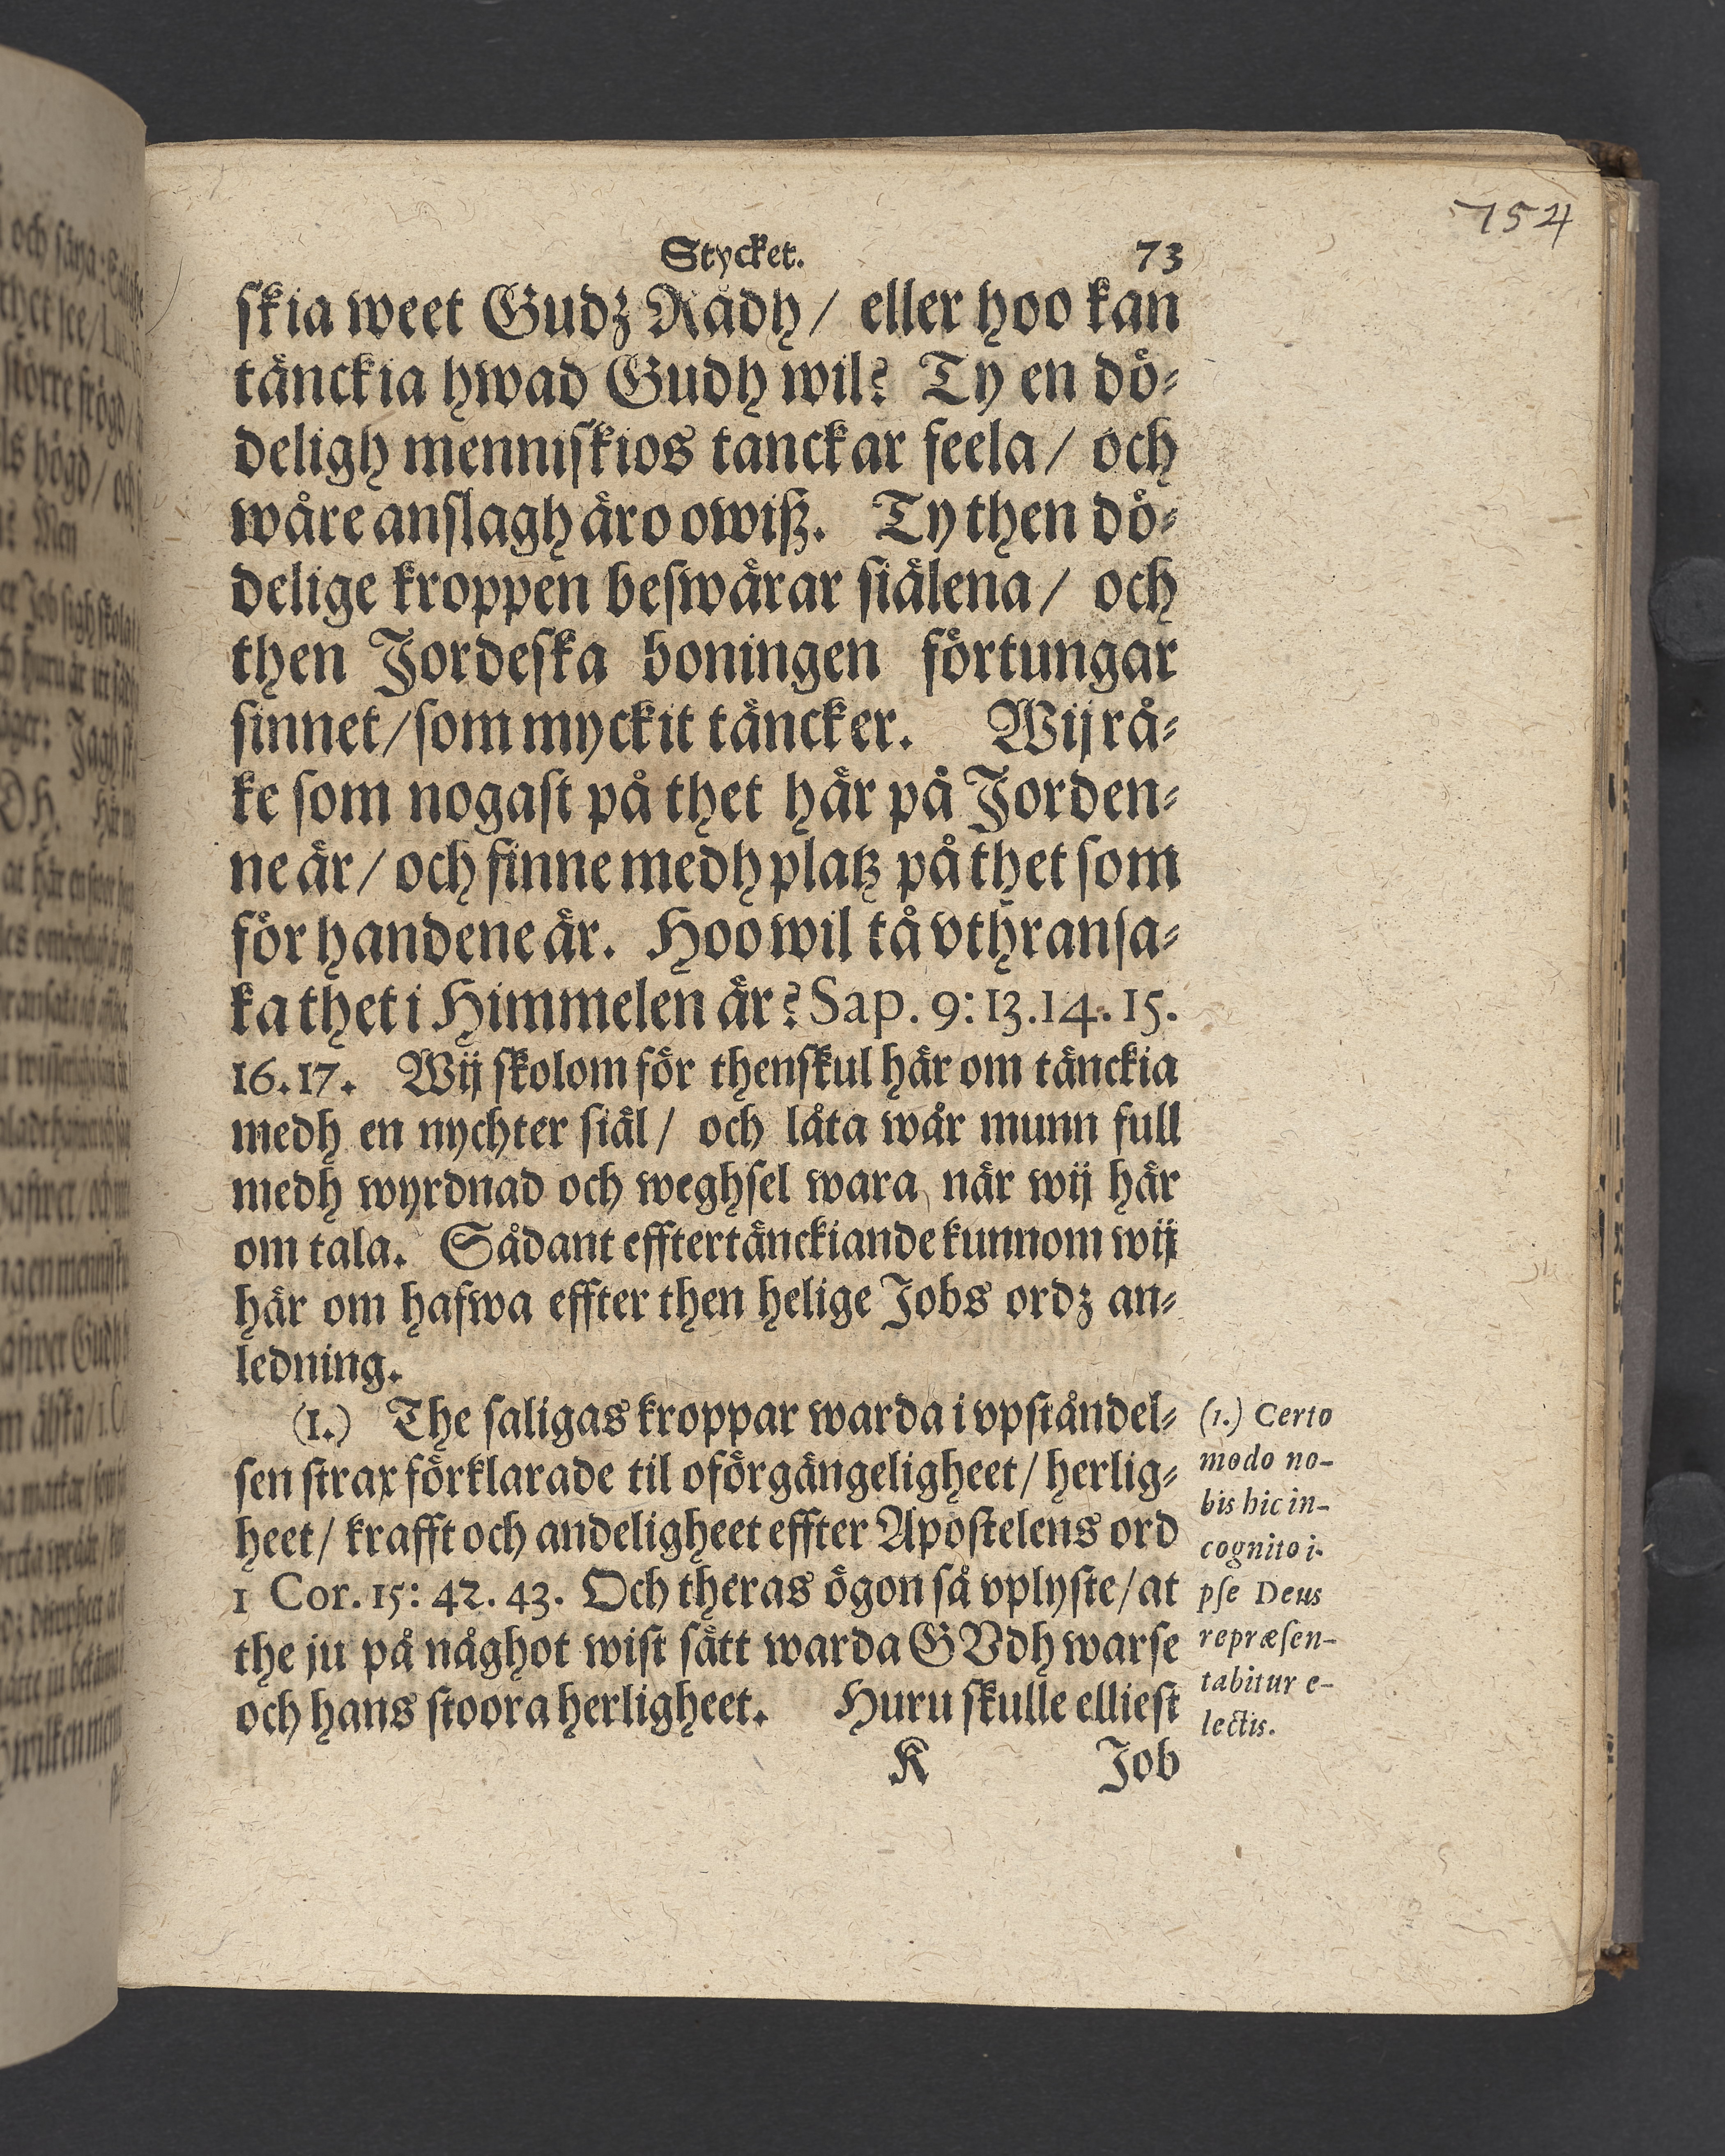 754
Stycket. 73
skia weet Gudz Rådh/ eller hoo kan
tänckia hwad Gudh wil? Ty en dö-
deligh menniskios tanckar feela/ och
wåre anslagh äro owiß. Ty then dö-
delige kroppen beswärar siälena/ och
then Jordeska boningen förtungar
sinnet/som myckit täncker. Wij rå-
ke som nogast på thet här på Jorden-
ne är/ och finne medh platz på thet som
för handene är. Hoo wil tå vthransa-
ka thet i Himmelen är? Sap. 9: 13.14. 15.
16. 17. Wij skolom för thenskul här om tänckia
medh en nychter siäl/ och låta wår munn full
medh wyrdnad och weghsel wara, när wij här
om tala. Sådant efftertänckiande kunnom wij
här om hafwa effter then helige Jobs ordz an-
ledning.
(1.) The saligas kroppar warda i vpståndel-
sen strax förklarade til oförgängeligheet/ herlig-
heet/ krafft och andeligheet effter Apostelens ord
1 Cor. 15: 42. 43. Och theras ögon så vplyste/ at
the ju på någhot wist sätt warda GVdh warse
och hans stoora herligheet. Huru skulle elliest
K Job
(1.) Certo
modo no-
bis hic in-
cognito i-
pse Deus
repræsen-
tabitur e-
lectis.